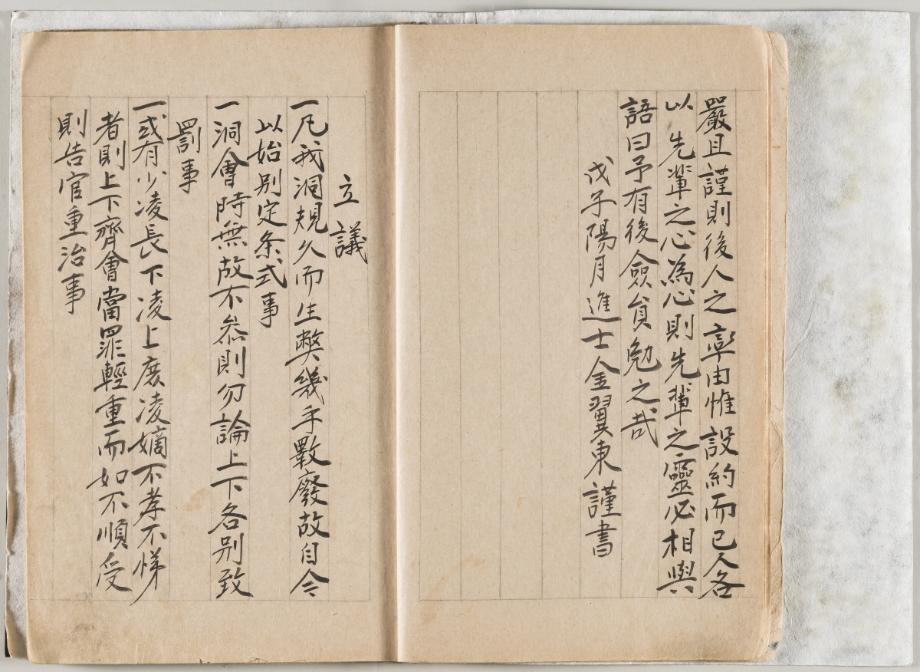 嚴且謹則後人之率由惟設約而已人各
以先輩之心為心則先輩之靈必相與
語曰予有後僉員勉之哉
戊子陽月進士金翼東謹書
立議
一凡我洞規久而生弊幾乎數廢故自今
以始別定条式事
一洞會時無故不叅則勿論上下各別致
罰事
一或有少凌長下凌上庶凌嫡不孝不悌
者則上下齊會當罪輕重而如不順受
則告官重治事